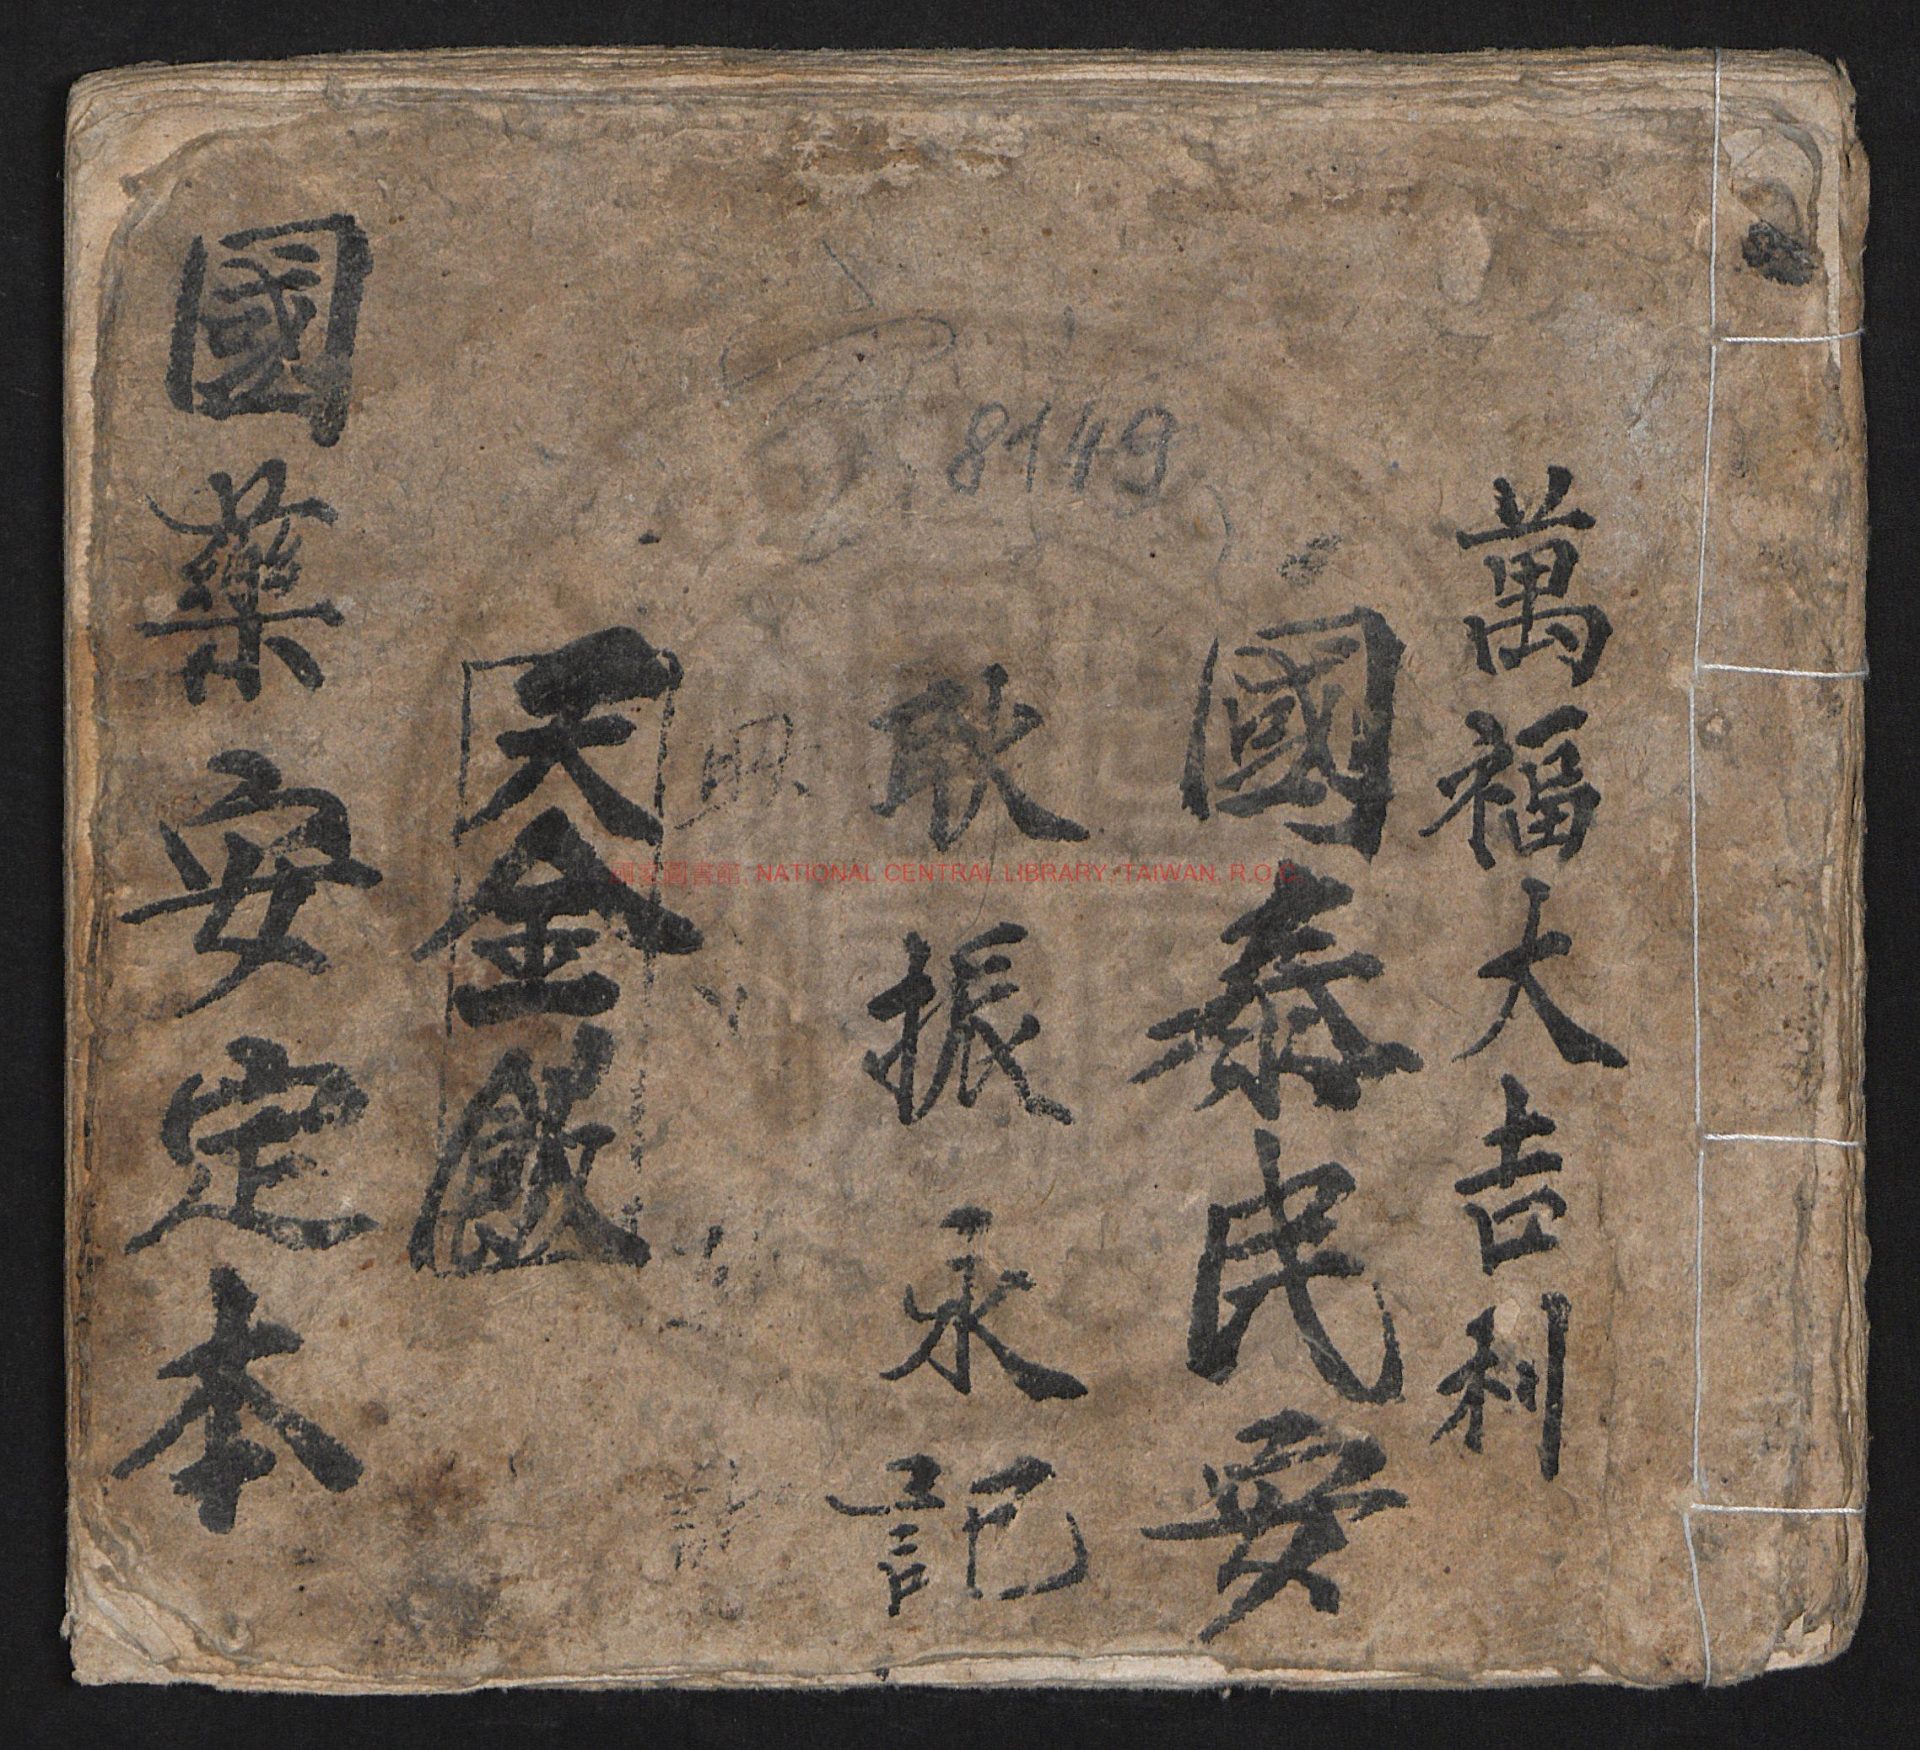 萬福大吉利
國泰民安
耿振永記
天金
國藥安定本
8149
國家圖書館, NATIONAL CENTRAL LIBRARY, TAIWAN, R.O.C.